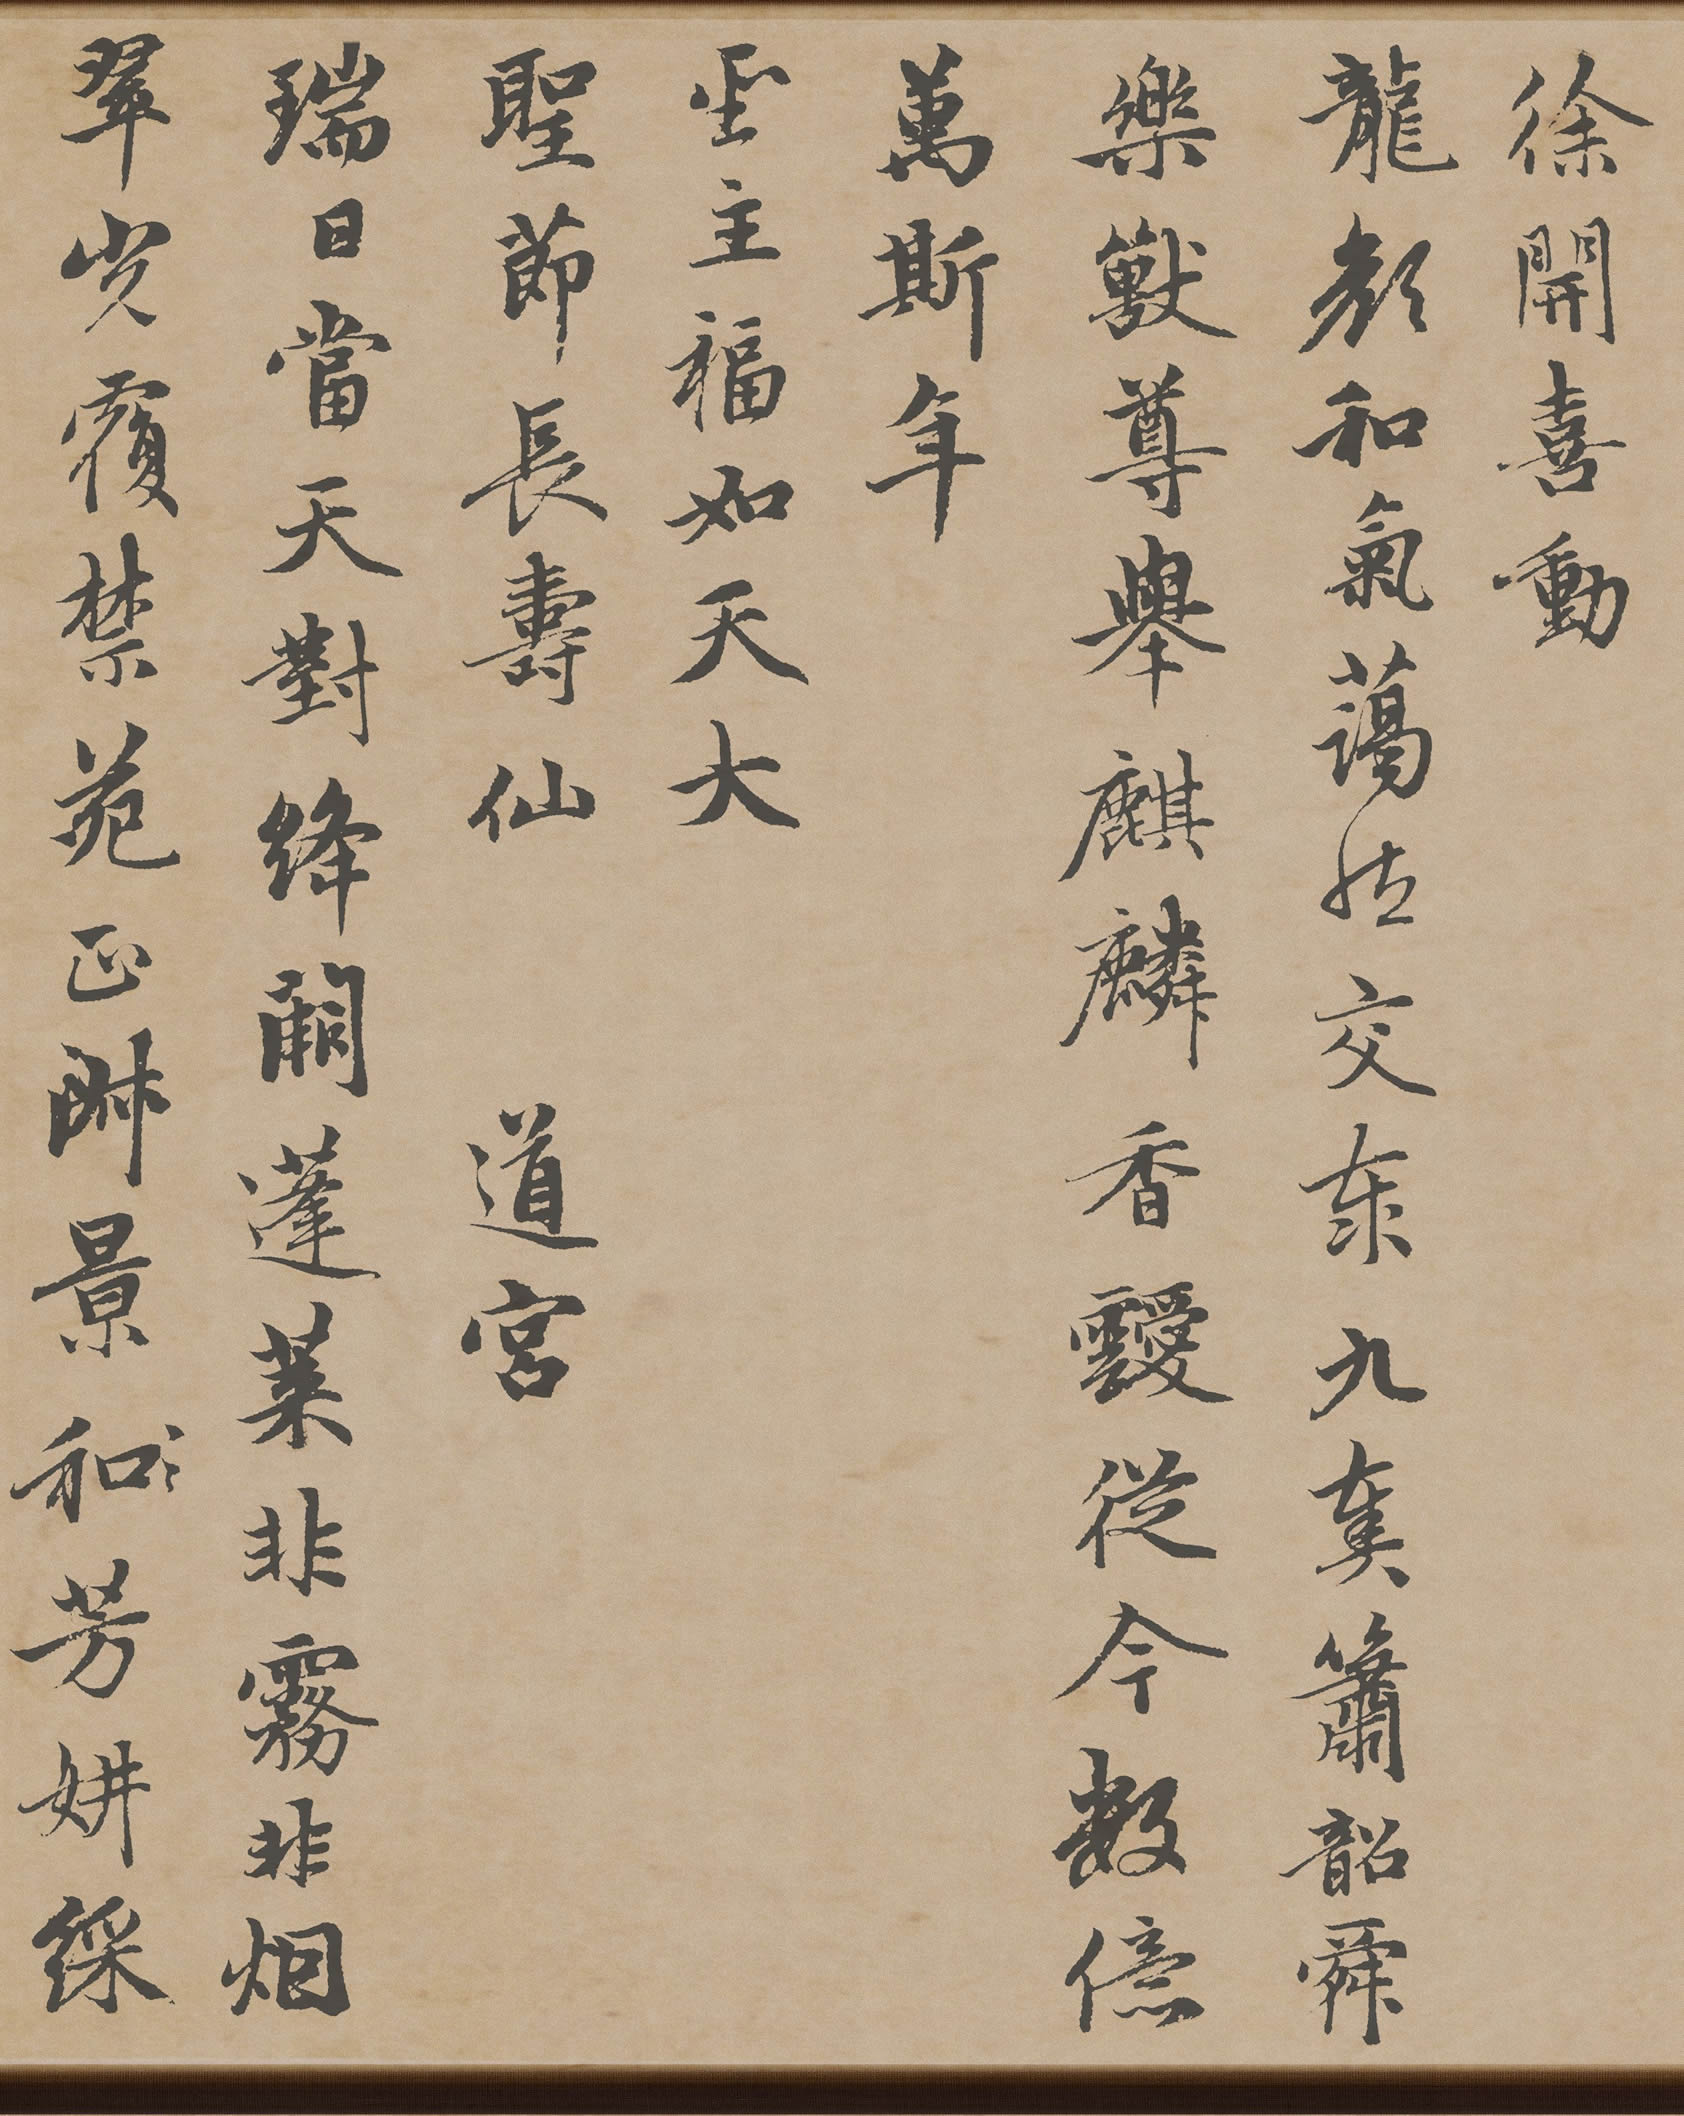 徐開喜動
龍顔和氣藹然交泰九奏簫韶舜
樂獸尊舉麒麟香靉從今數億
萬斯年
聖主福如天大
聖節長壽仙　道宮
瑞日當天對絳闕蓬萊非霧非烟
翠光覆禁苑正淑景和芳妍綵